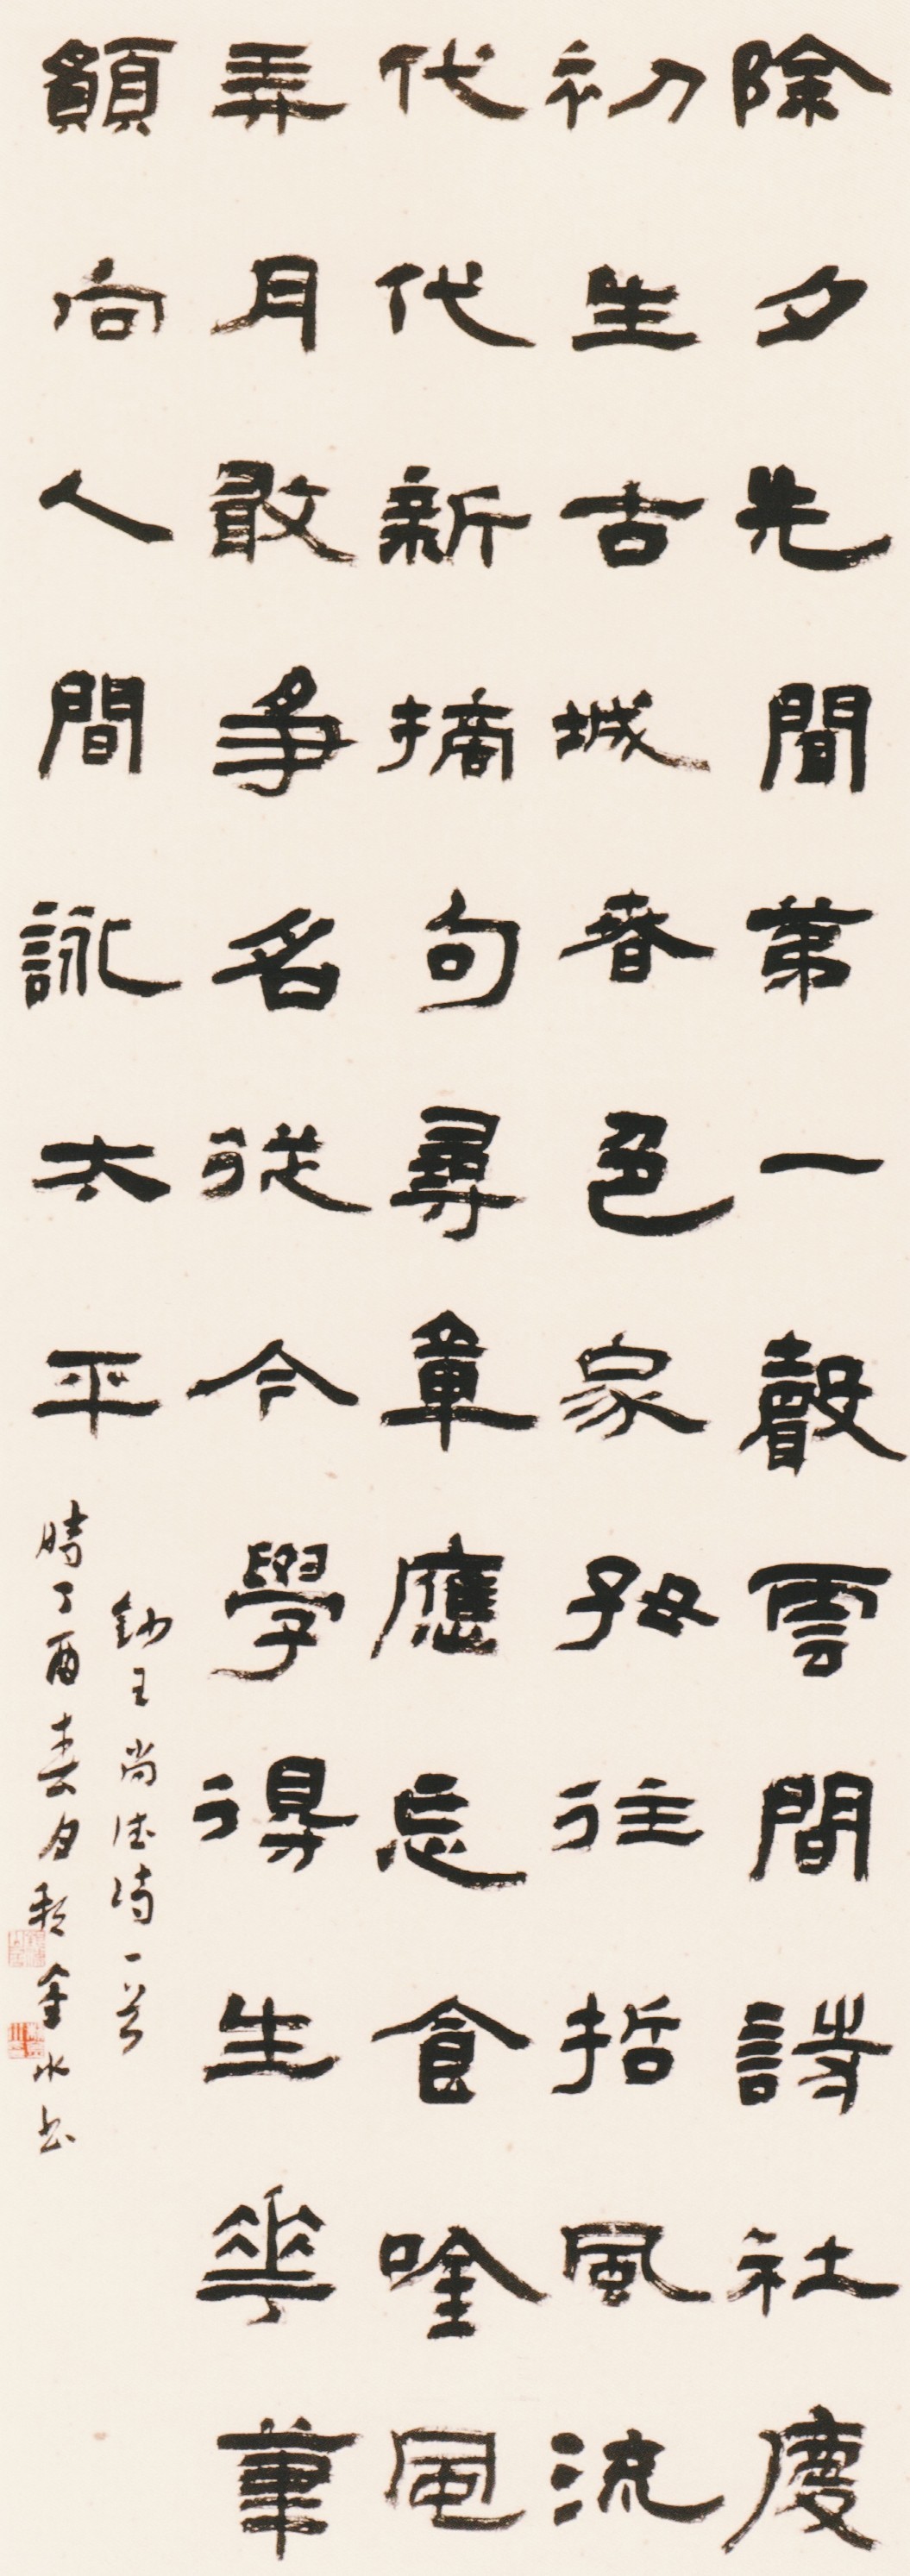 除夕先聞第一聲雲間詩社慶
初生古城春色家好往哲風流
代代新摘句尋章應忘食唫風
弄月敢爭名從今學得生花筆
願向人間詠太平
鈔王尚德詩一首
時丁酉春月金水書